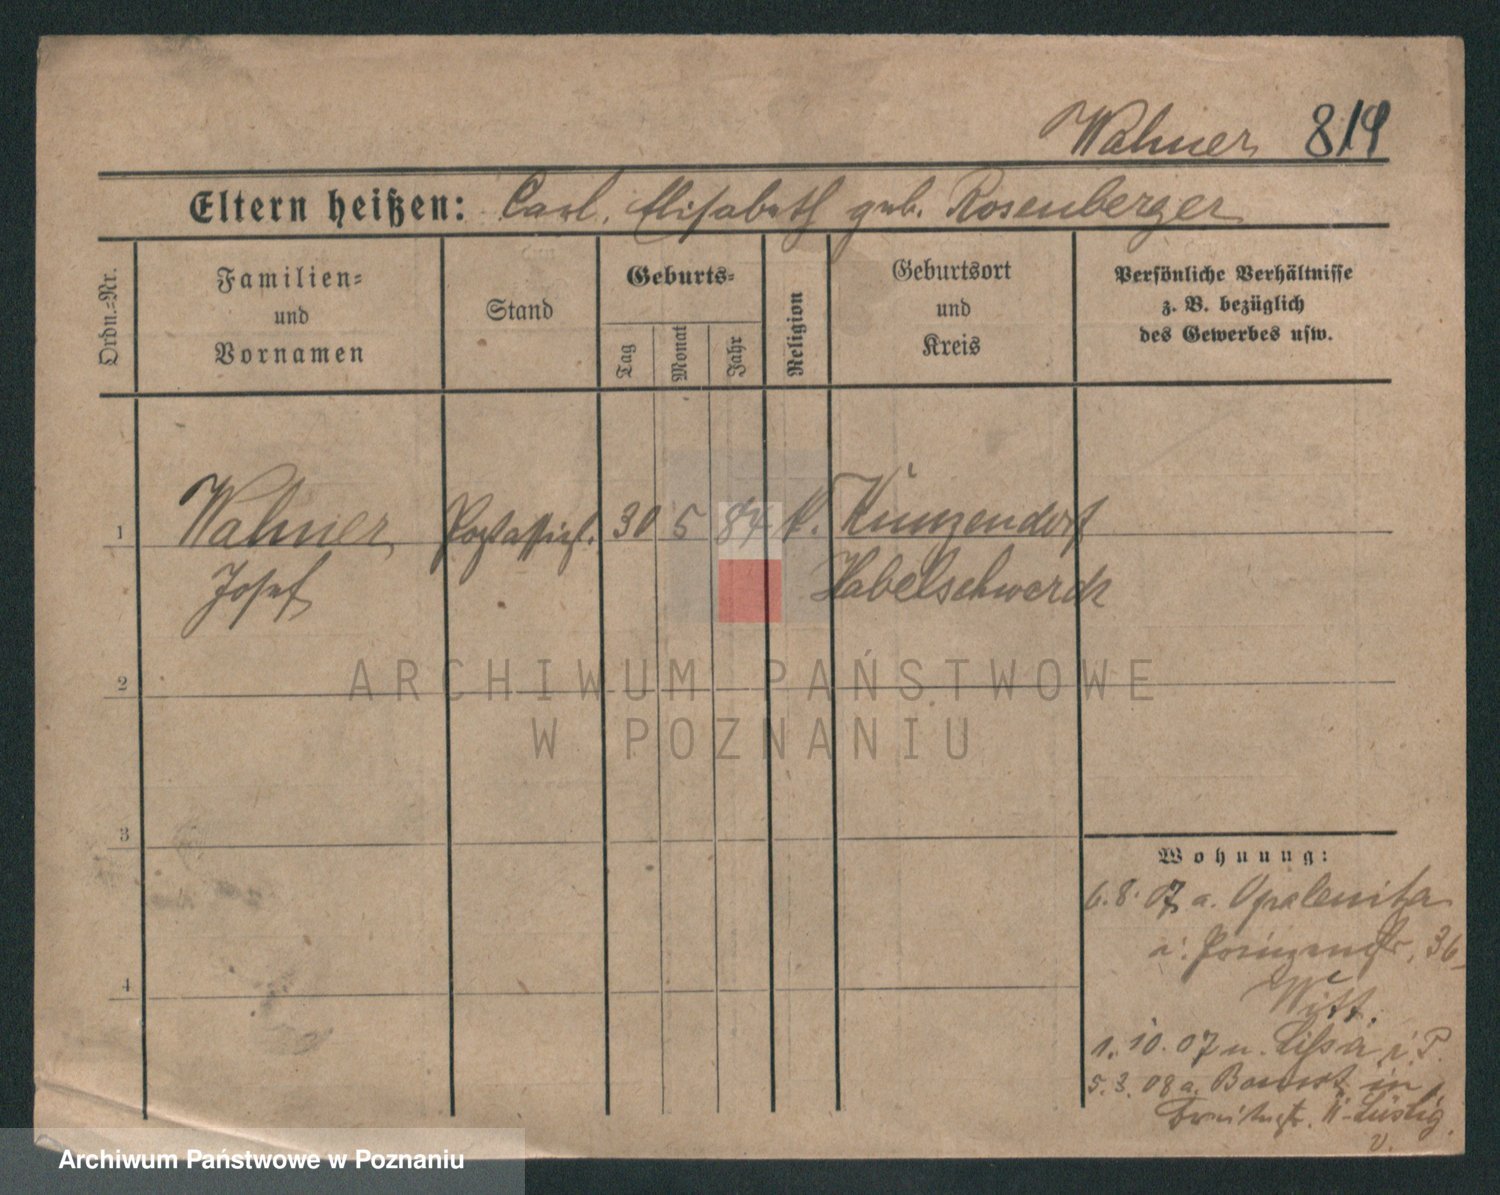 Wahner 819
Eltern heißen: Carl, Elisabeth geb. Rosenberger
Ordn.-Nr.
Familien-
und
Vornamen
Stand
Geburts-
Tag
Monat
Jahr
Religion
Geburtsort
und
Kreis
Persönliche Verhältnisse
z. B. bezüglich
des Gewerbes usw.
1 Wahner Postassist. 30 5 84 k. Kunzendorf
Josef Habelschwerdt
2
3
4
Wohnung:
6.8.07 a. Opalenitza
36
Witt.
1.10.07 n. Lissa i P.
5.3.08 a. Bomst in
ARCHIWUM PAŃSTWOWE
W POZNANIU
Archiwum Państwowe w Poznaniu